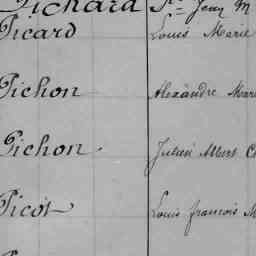 Pichard St Jean M
Picard Louis Marie
Pichon Alexandre Mari
Pichon. Julien Albert C
Picot Louis françois M